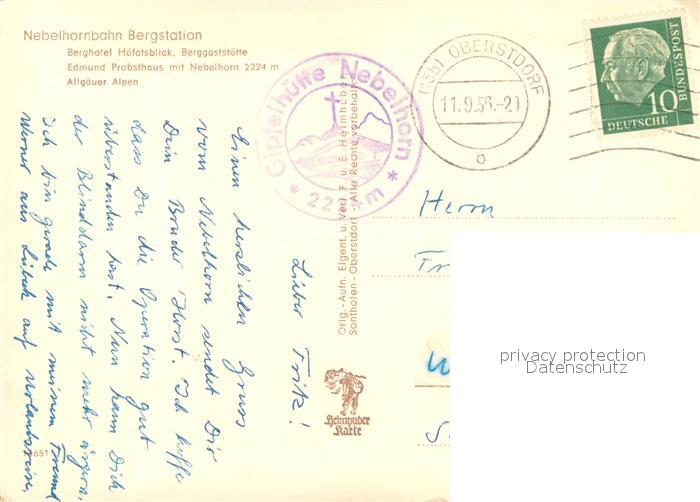 Nebelhornbahn Bergstation
Berghotel Höfatsblick, Berggaststätte
Edmund Probsthaus mit Nebelhorn 2224 m
Allgäuer Alpen
Gipfelhütte Nebelhorn
* 2224 m *
(13b) OBERSTDORF
11.9.56.-20
DEUTSCHE
BUNDESPOST
10
Herrn
Lieber Fritz!
Einen herzlichen Gruss
vom Nebelhorn sendet Dir
Dein Bruder Horst. Ich hoffe
dass Du die Operation gut
überstanden hast. Nun kann Dich
der Blinddarm nicht mehr ärgern.
Ich bin gerade mit meinem Freund
Werner aus Lübeck auf Urlaubsreise.
Orig.-Aufn. Eigent. u. Verl. F. u. E. Heimhuber
Sonthofen - Oberstdorf - Alle Rechte vorbehalten
Heimhuber
Karte
privacy protection
Datenschutz